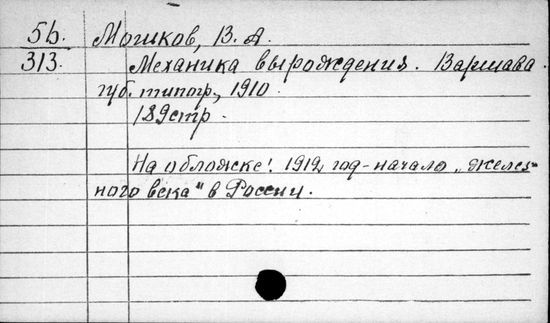 5б. Мошков, В. А.
313. Механика вырождения. Варшава.
губ. типогр., 1910
189стр.
На обложке: 1912 год - начало „желез-
ного века" в России.